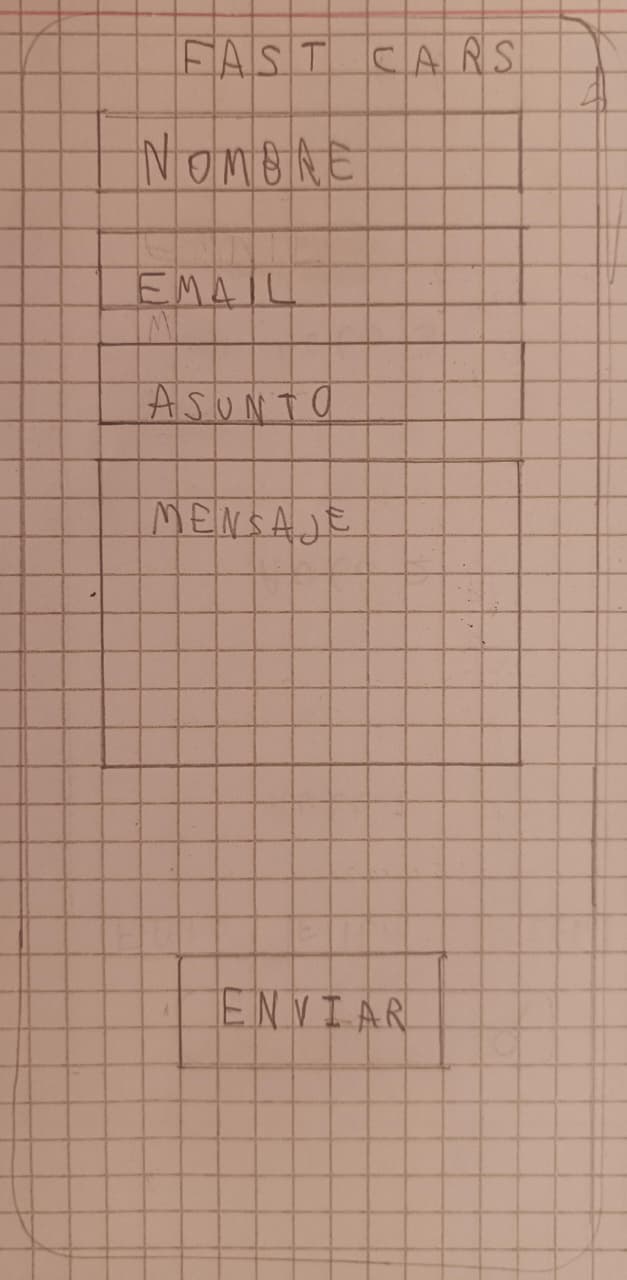 FAST CARS
NOMBRE
EMAIL
M
ASUNTO
MENSAJE
ENVIAR